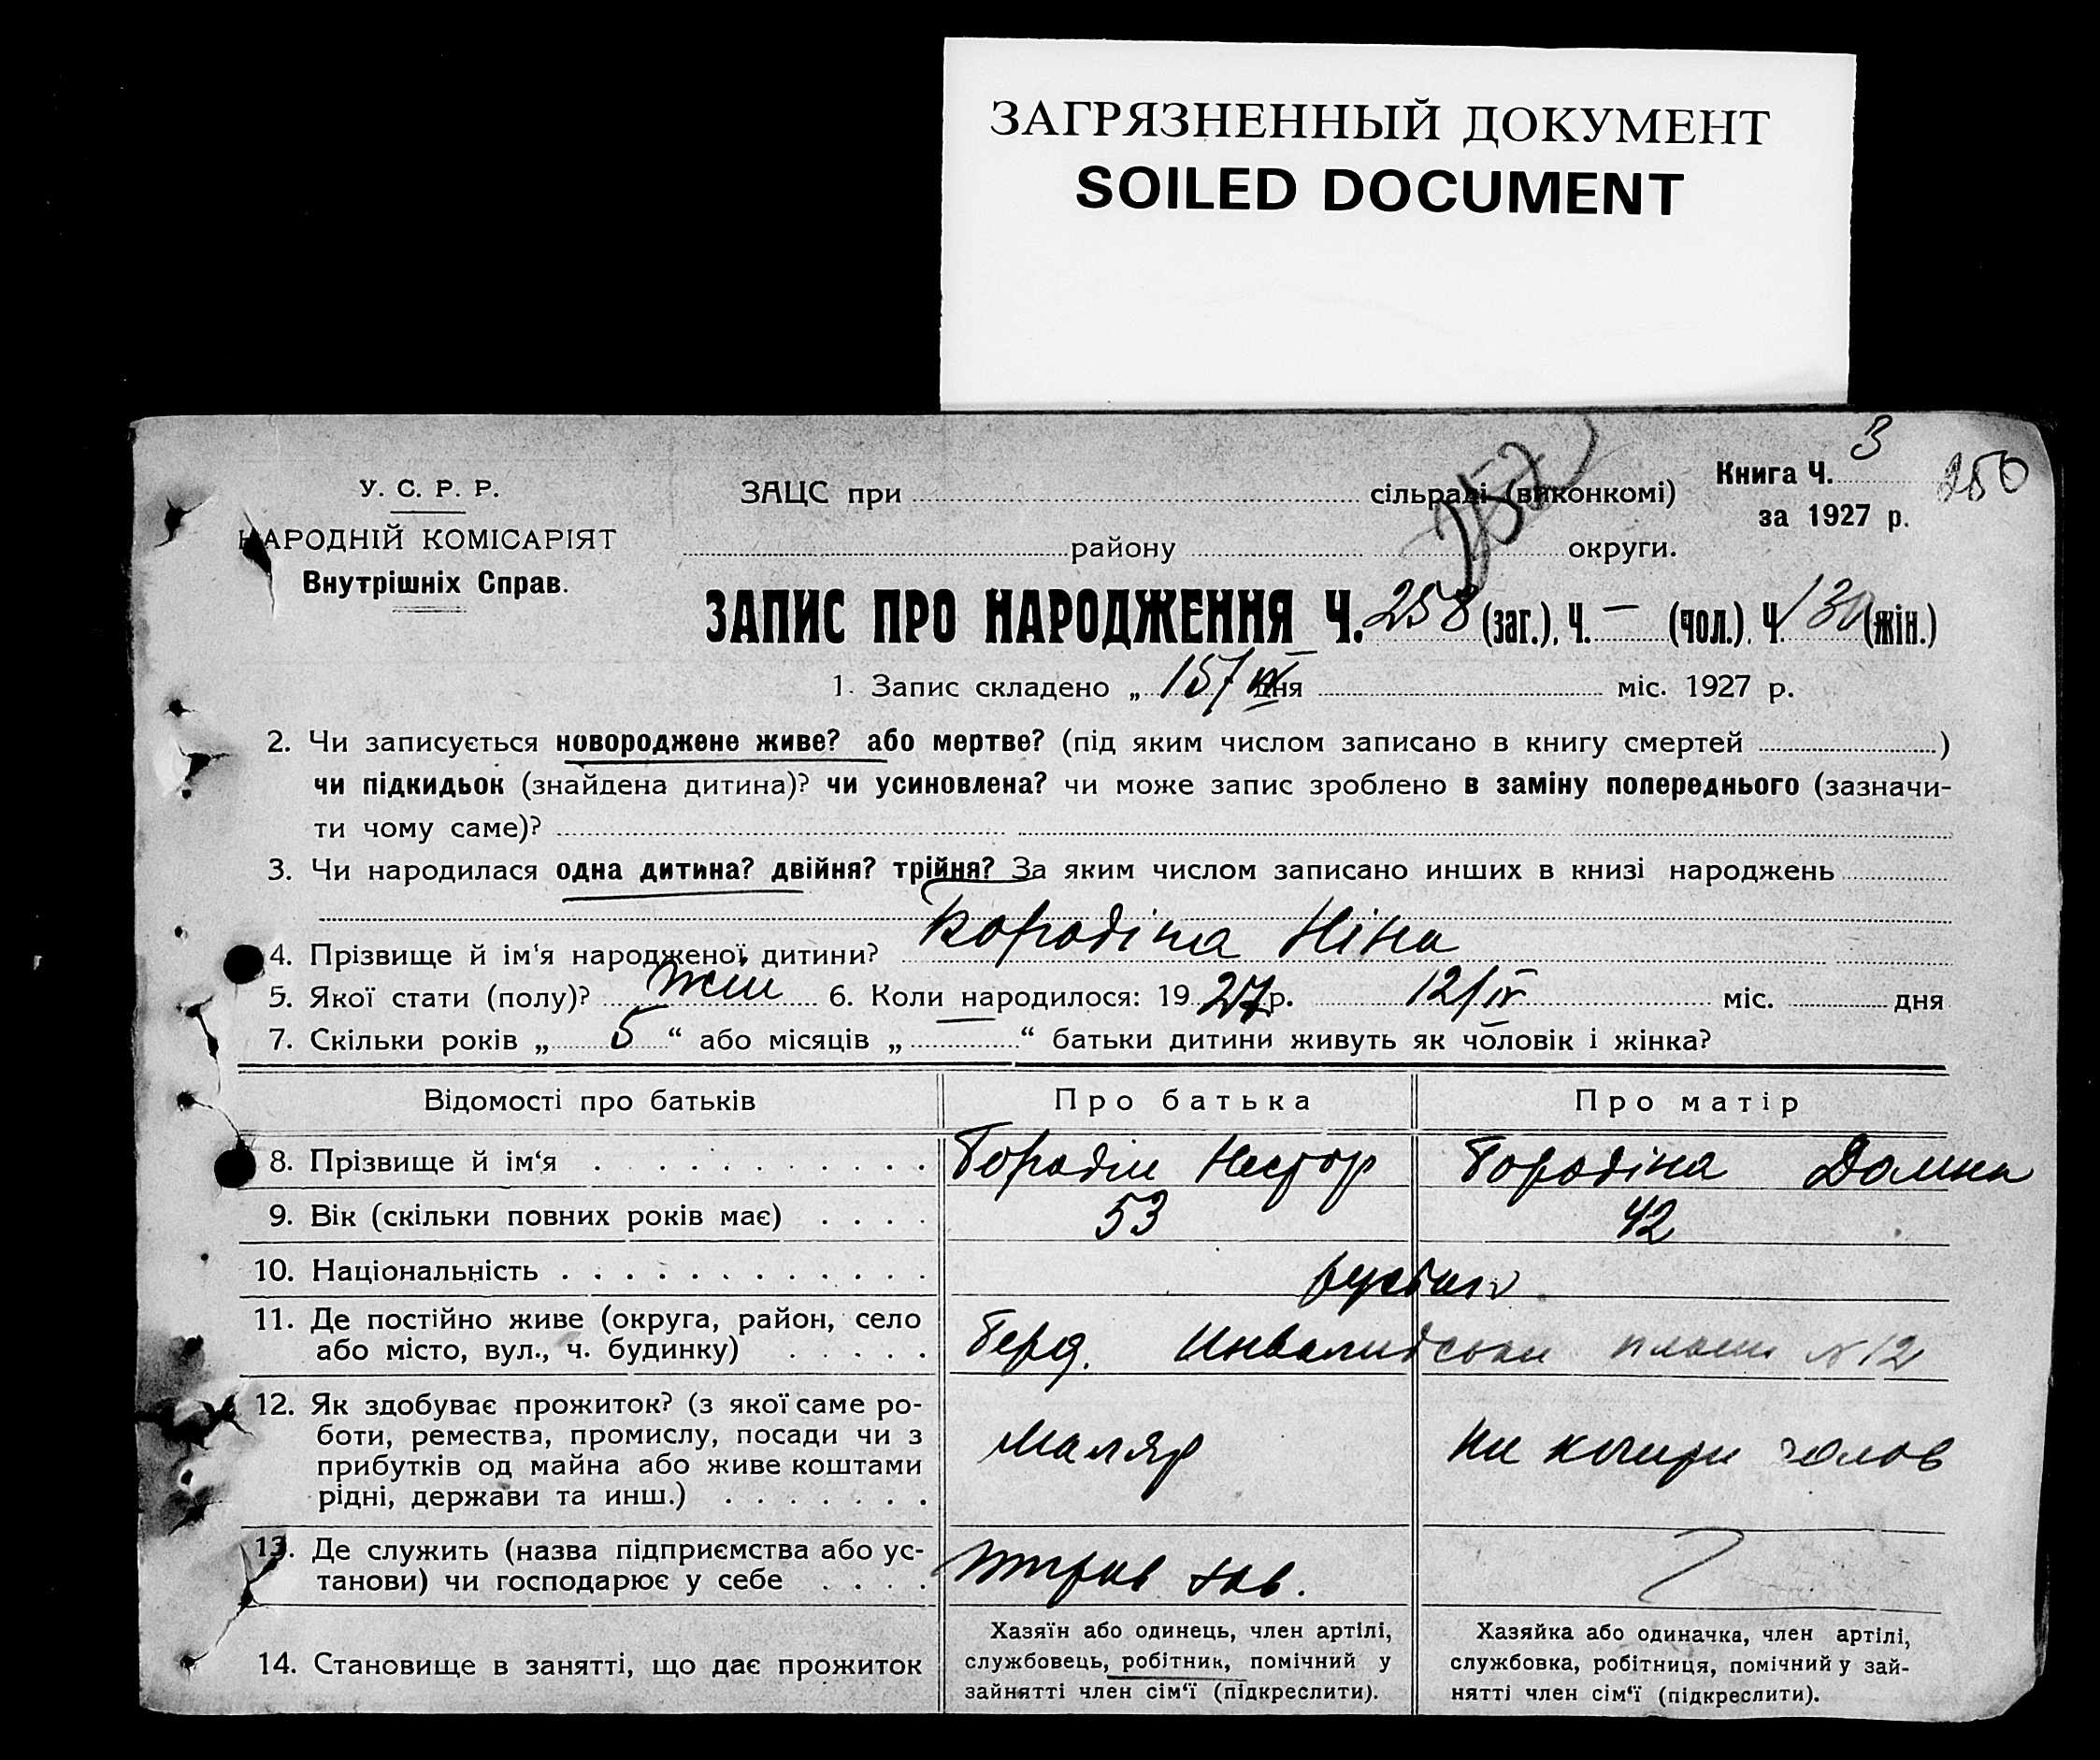 ЗАГРЯЗНЕННЫЙ ДОКУМЕНТ
SOILED DOCUMENT
3
Книга Ч.
250
за 1927 р.
252
У. С. Р. Р.
НАРОДНІЙ КОМІСАРІЯТ
Внутрішніх Справ.
ЗАЦС при сільраді (виконкомі)
району округи.
ЗАПИС ПРО НАРОДЖЕННЯ Ч. 258 (заг.), Ч. — (чол.), Ч. 130 (жін.)
1. Запис складено „ 15/ІХ дня міс. 1927 р.
2. Чи записується новороджене живе? або мертве? (під яким числом записано в книгу смертей )
чи підкидьок (знайдена дитина)? чи усиновлена? чи може запис зроблено в заміну попереднього (зазначи-
ти чому саме)?
3. Чи народилася одна дитина? двійня? трійня? За яким числом записано инших в книзі народжень
4. Прізвище й ім‘я народженої дитини? Бородіна Ніна
5. Якої стати (полу)? жін 6. Коли народилося: 1927 р. 12/IX міс. дня
7. Скільки років „ 5 “ або місяців „ “ батьки дитини живуть як чоловік і жінка?
Відомості про батьків Про батька Про матір
8. Прізвище й ім‘я Бородін Нестор Бородіна Домна
9. Вік (скільки повних років має) 53 42
10. Національність
11. Де постійно живе (округа, район, село
або місто, вул., ч. будинку) Берд. N 12
12. Як здобуває прожиток? (з якої саме ро-
боти, ремества, промислу, посади чи з
прибутків од майна або живе коштами
рідні, держави та инш.) Маляр
13. Де служить (назва підприємства або ус-
танови) чи господарює у себе зав.
14. Становище в занятті, що дає прожиток
Хазяїн або одинець, член артілі,
службовець, робітник, помічний у
зайнятті член сім‘ї (підкреслити).
Хазяйка або одиначка, член артілі,
службовка, робітниця, помічний у зай-
нятті член сім‘ї (підкреслити).